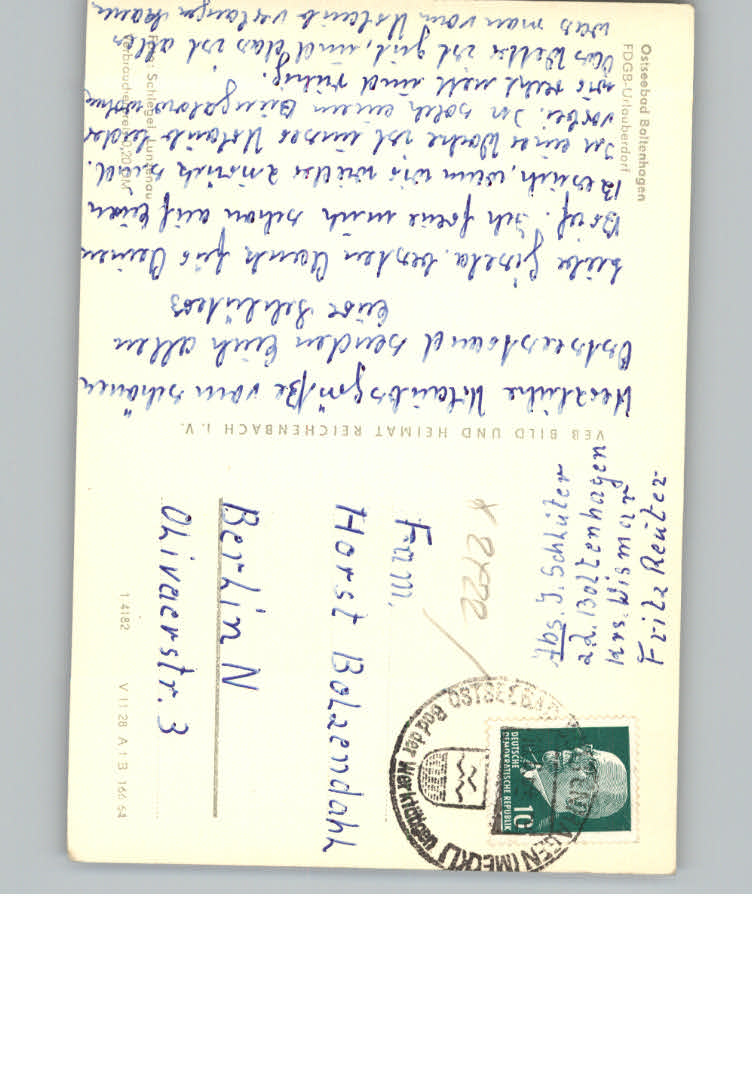 Ostseebad Boltenhagen
FDGB-Urlauberdorf
Herzliche Urlaubsgrüße vom schönen
Ostseestrand senden Euch allen
Eure Schlüters
Liebe Gisela, besten Dank für Deinen
Brief. Ich freue mich schon auf Euren
Besuch, wenn wir wieder zurück sind.
In einer Woche ist unser Urlaub leider
vorbei. In solch einem Bungalow wohnen
wir recht nett und ruhig.
Das Wetter ist gut, und das ist alles
was man vom Urlaub verlangen kann
Foto: Schlegel, Lunzenau
Verbraucherpreis 0,20 DM
VEB BILD UND HEIMAT REICHENBACH i. V.
Abs. J. Schlüter
z.Z. Boltenhagen
Krs. Wismar
Fritz Reuter
Fam.
Horst Bolzendahl
Berlin N
Olivaerstr. 3
1/4182 V 11 28 A 1 B 166 64
DEUTSCHE
DEMOKRATISCHE REPUBLIK
10
OSTSEEBAD BOLTENHAGEN (MECKL)
Bad der Werktätigen